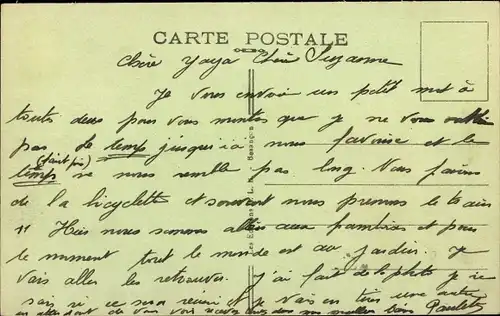 CARTE POSTALE
Chère Yaya Chère Suzanne
Je vous envoie un petit mot à
toutes deux pour vous montrer que je ne vous oublie
pas le temps jusqu'ici nous favorise et le
(fait pis)
temps ne nous semble pas long. Nous faisons
de la bicyclette et souvent nous prenons le train
Hier nous sommes allées aux et pour
le moment tout le monde est au jardin. Je
vais aller les retrouver. J'ai fait des photos je ne
sais si ce sera réussi et je vais en tirer une autre
en attendant de vous voir recevez mes meilleurs baisers Paulette